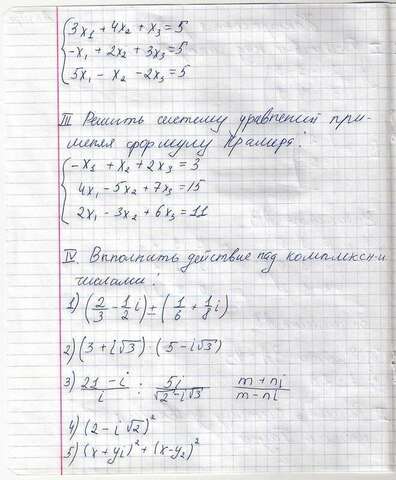 3x₁ + 4x₂ + x₃ = 5
-x₁ + 2x₂ + 3x₃ = 5
5x₁ - x₂ - 2x₃ = 5
III Решить систему уравнений при-
меняя формулу Крамера:
-x₁ + x₂ + 2x₃ = 3
4x₁ - 5x₂ + 7x₃ = 15
2x₁ - 3x₂ + 6x₃ = 11
IV. Выполнить действие над комплексн-и
числами:
1) (2/3 - 1/2 i) ± (1/6 + 1/8 i)
2) (3 + i√3) (5 - i√3)
3) 21 - i / i : 5i / √2 - i√3 m + ni / m - ni
4) (2 - i√2)²
5) (x + yi)² + (x - y₂)²